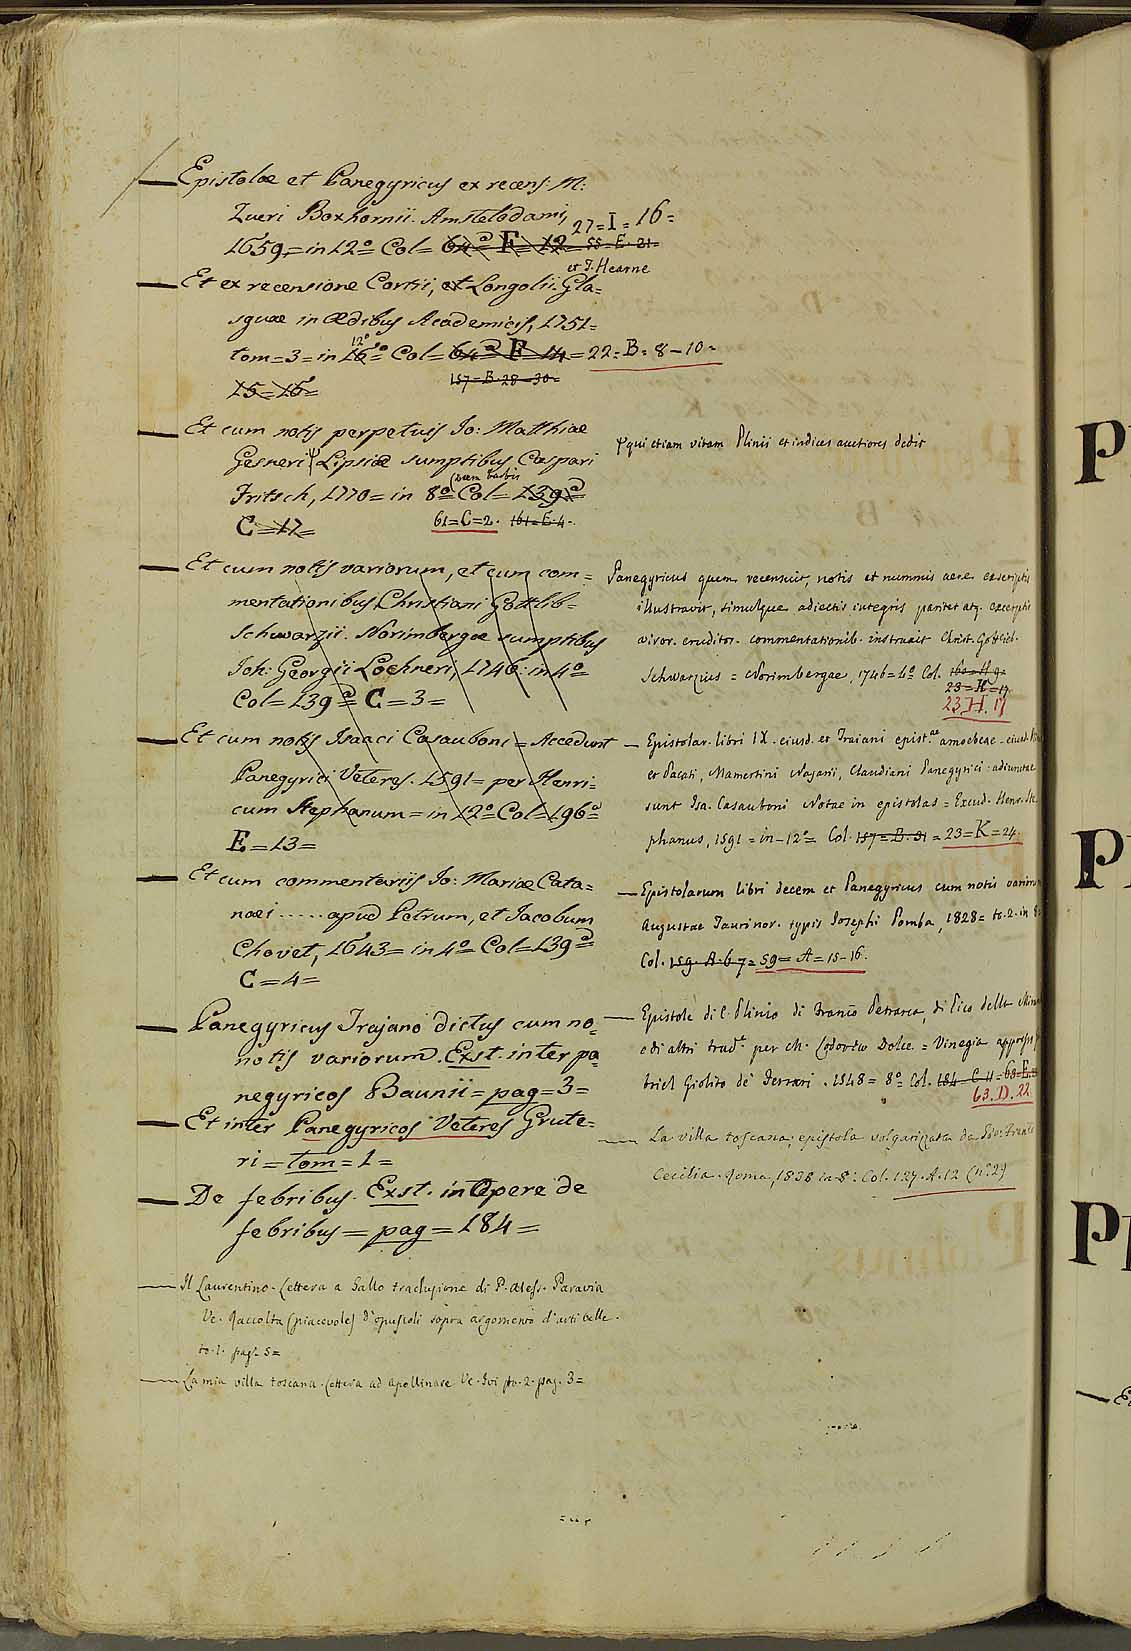 Epistolæ et Panegyricus ex recens: M:
Zueri Boxhornii. Amstelodami,
27=I=16=
1659,=in 12º Col= 64ª F=12 = 55=E=21=
et T. Hearne
Et ex recensione Cortii, et Longolii. Gla=
sguæ in Ædibus Academicis, 1751=
12º
tom=3=in 16º Col=64ª F 14=22=B=8-10=
15=16= 157=B=28=30=
Et cum notis perpetuis Io: Matthiæ
Gesneri Lipsiæ sumptibus Caspari
Fritsch, 1770= in 8º Col=139ª=
C=17= 61=C=2. 161=E.4.
Et cum notis variorum, et cum com=
mentationibus Christiani Gottlib=
Schwarzii. Norimbergæ sumptibus
Joh: Georgii Lochneri, 1746 in 4º
Col=139ª= C=3=
Et cum notis Isaaci Casauboni=Accedunt
Panegyrici Veteres. 1591= per Henri=
cum Stephanum=in 12º Col=196ª
E=13=
Et cum commentariis Io: Mariæ Cata=
næi ...... apud Petrum, et Jacobum
Chovet, 1643= in 4º Col=139ª=
C=4=
Panegyricus Trajano dictus cum no=
notis variorum. Exst. inter pa
negyricos Baunii=pag=3=
Et inter Panegyricos Veteres Grute=
ri=tom=1=
De febribus. Exst. in Opere de
febribus=pag=184=
Il Laurentino. Lettera a Gallo traduzione di P. Aless. Paravia
Ve. Raccolta (piacevole) d'opuscoli sopra argomento d'arti belle.
to. 1. pag. 5=
La mia villa toscana. Lettera ad Apollinare Ve. Ivi to. 2. pag. 3=
qui etiam vitam Plinii et indices auctiores dedit
Panegyricus quem recensuit, notis et nummis aere exscriptis
illustravit, simulque adiectis integris pariter atq. excerptis
viror. eruditor. commentationib. instruxit Christ. Gottlieb.
Schwarzius = Norimbergae, 1746=4º Col. 160=H 9=
23=H=17
23.H.17
Epistolar. libri IX. eiusd. et Traiani epist.ae amoebeae. eiusd.
et Pacati, Mamertini Nazarii, Claudiani Panegyrici: adiunctae
sunt Isa. Casauboni Notae in epistolas = Excud. Henr. Ste
phanus, 1591 = in-12º= Col. 157=B.31 = 23=K=24.
Epistolarum libri decem et Panegyricus cum notis varior
Augustae Taurinor. typis Iosephi Pomba, 1828= to. 2. in 8º
Col. 159. A. 6 7= 59= A= 15-16.
Epistole di C. Plinio di Franco Petrarca, di Pico della Miran
e di altri trad.te per ch. Lodovico Dolce. = Vinegia appresso
briel Giolito de' Ferrari. 1548= 8º Col. 184=C 11=
63. D. 22
La villa toscana; epistola volgarizzata da
Cecilia. Roma, 1838 in 8º: Col. 127. A. 12 (nº 2)
P
P
P